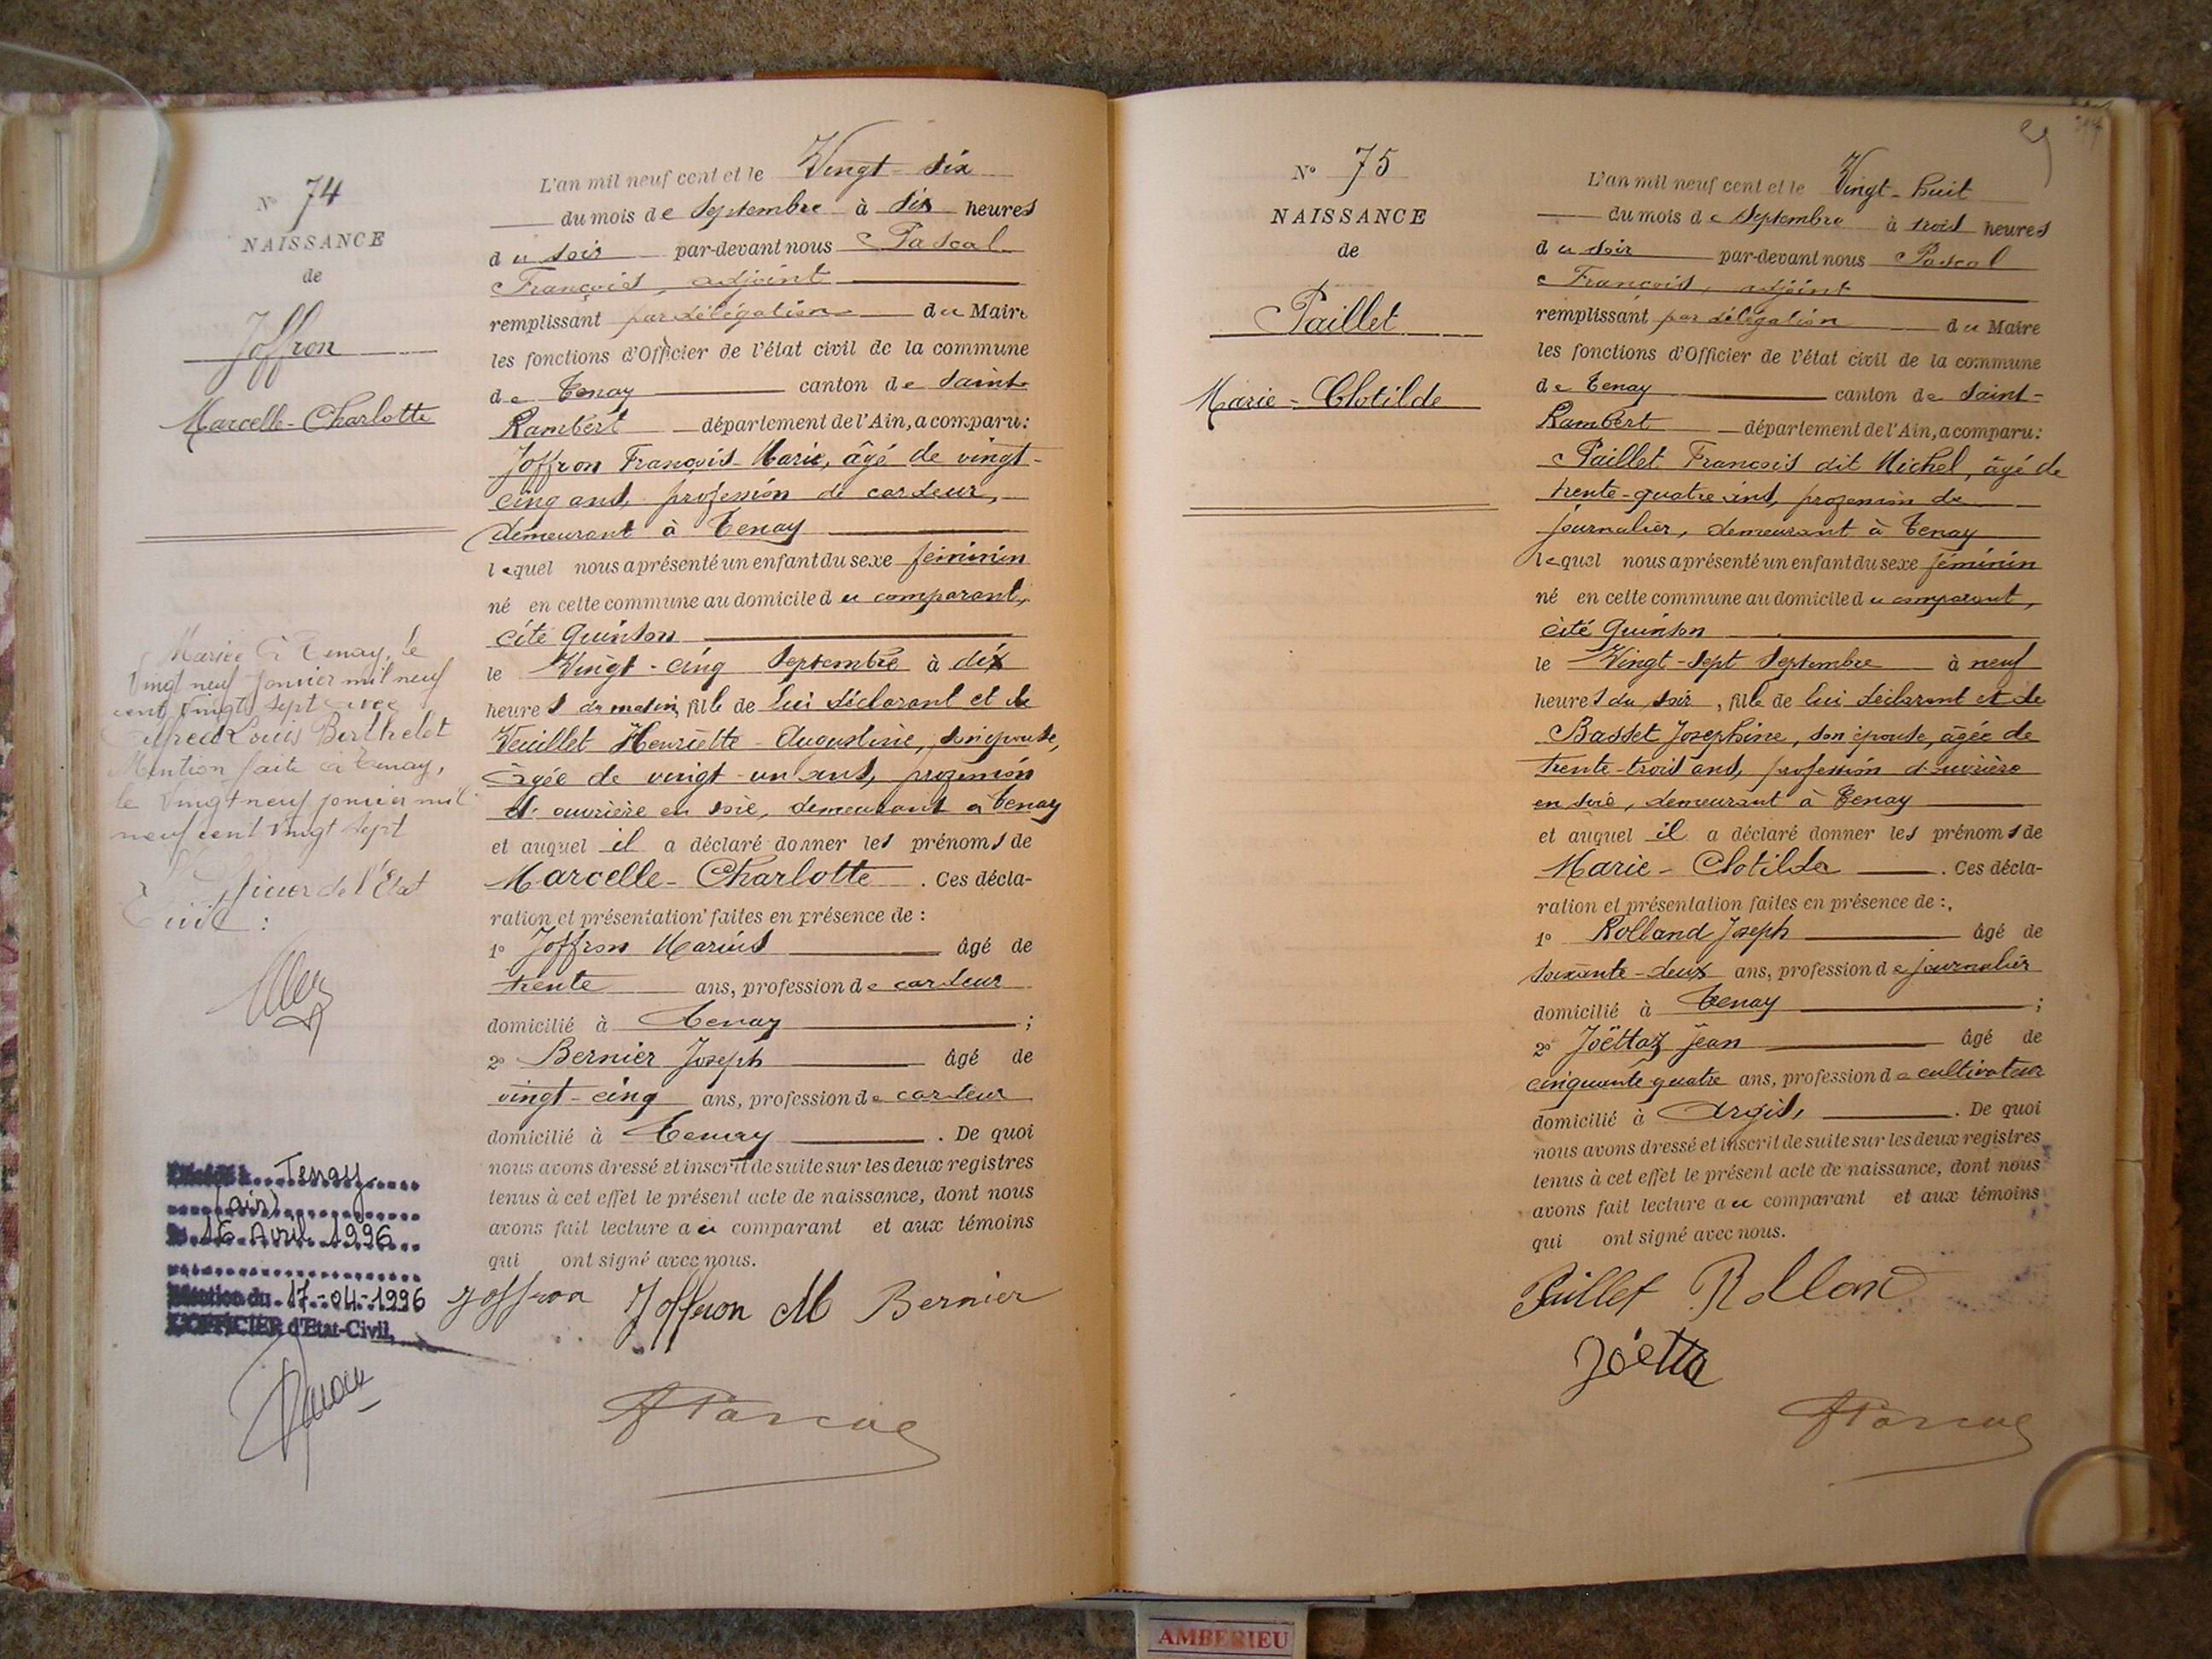 Nº 74
NAISSANCE
de
Joffron
Marcelle-Charlotte
Mariée à Tenay, le
Vingt neuf Janvier mil neuf
cent vingt sept avec
Alfred Louis Berthelet
Mention faite à Tenay,
le Vingt neuf janvier mil
neuf cent vingt sept
L'Officier de l'État
Civil :
Tenay
(ain)
16 Avril 1996
Mention du 17-04-1996
L'OFFICIER d'Etat-Civil,
L'an mil neuf cent et le Vingt-six
du mois de Septembre à six heures
du soir par-devant nous Pascal
François, adjoint
remplissant par délégation du Maire
les fonctions d'Officier de l'état civil de la commune
de Tenay canton de Saint-
Rambert département de l'Ain, a comparu :
Joffron François-Marie, âgé de vingt-
cinq ans, profession de cardeur,
demeurant à Tenay
lequel nous a présenté un enfant du sexe féminin
né en cette commune au domicile du comparant,
cité Quinson
le Vingt-cinq Septembre à dix
heures du matin, fille de lui déclarant et de
Veuillet Henriette-Augustine, son épouse,
âgée de vingt-un ans, profession
d'ouvrière en soie, demeurant à Tenay
et auquel il a déclaré donner les prénoms de
Marcelle-Charlotte . Ces décla-
ration et présentation faites en présence de :
1º Joffron Marius âgé de
trente ans, profession de cardeur
domicilié à Tenay ;
2º Bernier Joseph âgé de
vingt-cinq ans, profession de cardeur
domicilié à Tenay . De quoi
nous avons dressé et inscrit de suite sur les deux registres
tenus à cet effet le présent acte de naissance, dont nous
avons fait lecture au comparant et aux témoins
qui ont signé avec nous.
Joffron Joffron M Bernier
F Pascal
Nº 75
NAISSANCE
de
Paillet
Marie-Clotilde
L'an mil neuf cent et le Vingt-huit
du mois de Septembre à trois heures
du soir par-devant nous Pascal
François, adjoint
remplissant par délégation du Maire
les fonctions d'Officier de l'état civil de la commune
de Tenay canton de Saint-
Rambert département de l'Ain, a comparu :
Paillet François dit Michel, âgé de
trente-quatre ans, profession de
journalier, demeurant à Tenay
lequel nous a présenté un enfant du sexe féminin
né en cette commune au domicile du comparant,
cité Quinson
le Vingt-sept Septembre à neuf
heures du soir, fille de lui déclarant et de
Basset Josephine, son épouse, âgée de
trente-trois ans, profession d'ouvrière
en soie, demeurant à Tenay
et auquel il a déclaré donner les prénoms de
Marie-Clotilde . Ces décla-
ration et présentation faites en présence de :
1º Rolland Joseph âgé de
soixante-deux ans, profession de journalier
domicilié à Tenay ;
2º Joëttaz Jean âgé de
cinquante quatre ans, profession de cultivateur
domicilié à Argis, . De quoi
nous avons dressé et inscrit de suite sur les deux registres
tenus à cet effet le présent acte de naissance, dont nous
avons fait lecture au comparant et aux témoins
qui ont signé avec nous.
Paillet Rollan
Joétta
F Pascal
AMBERIEU